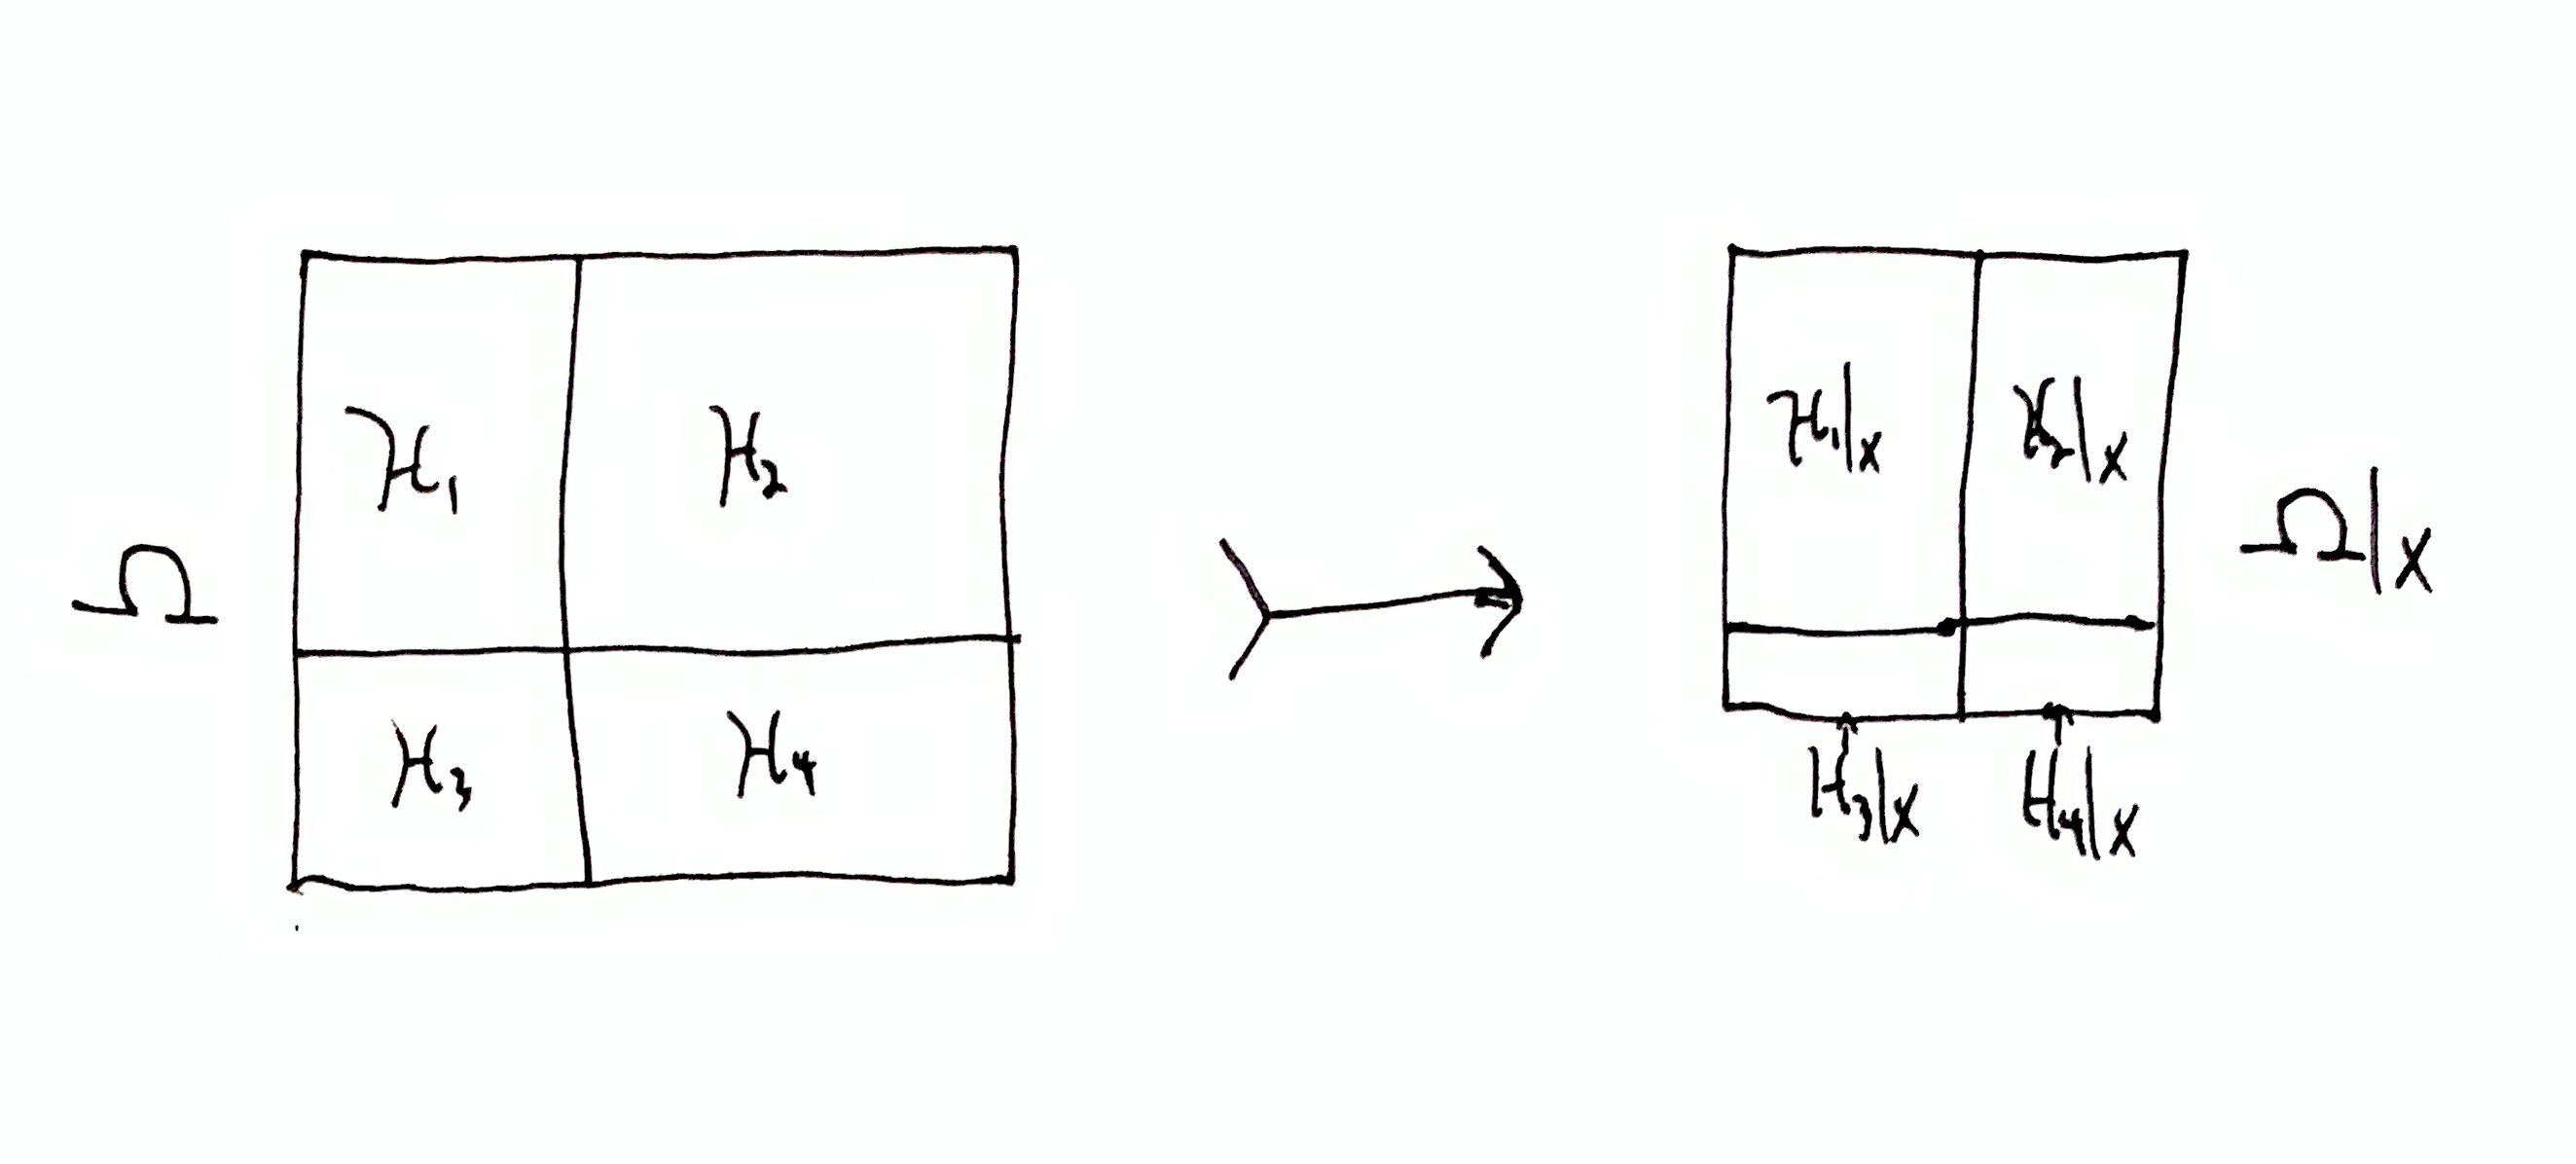 Ω
H₁ H₂
H₃ H₄
H₁|x H₂|x
Ω|x
H₃|x H₄|x